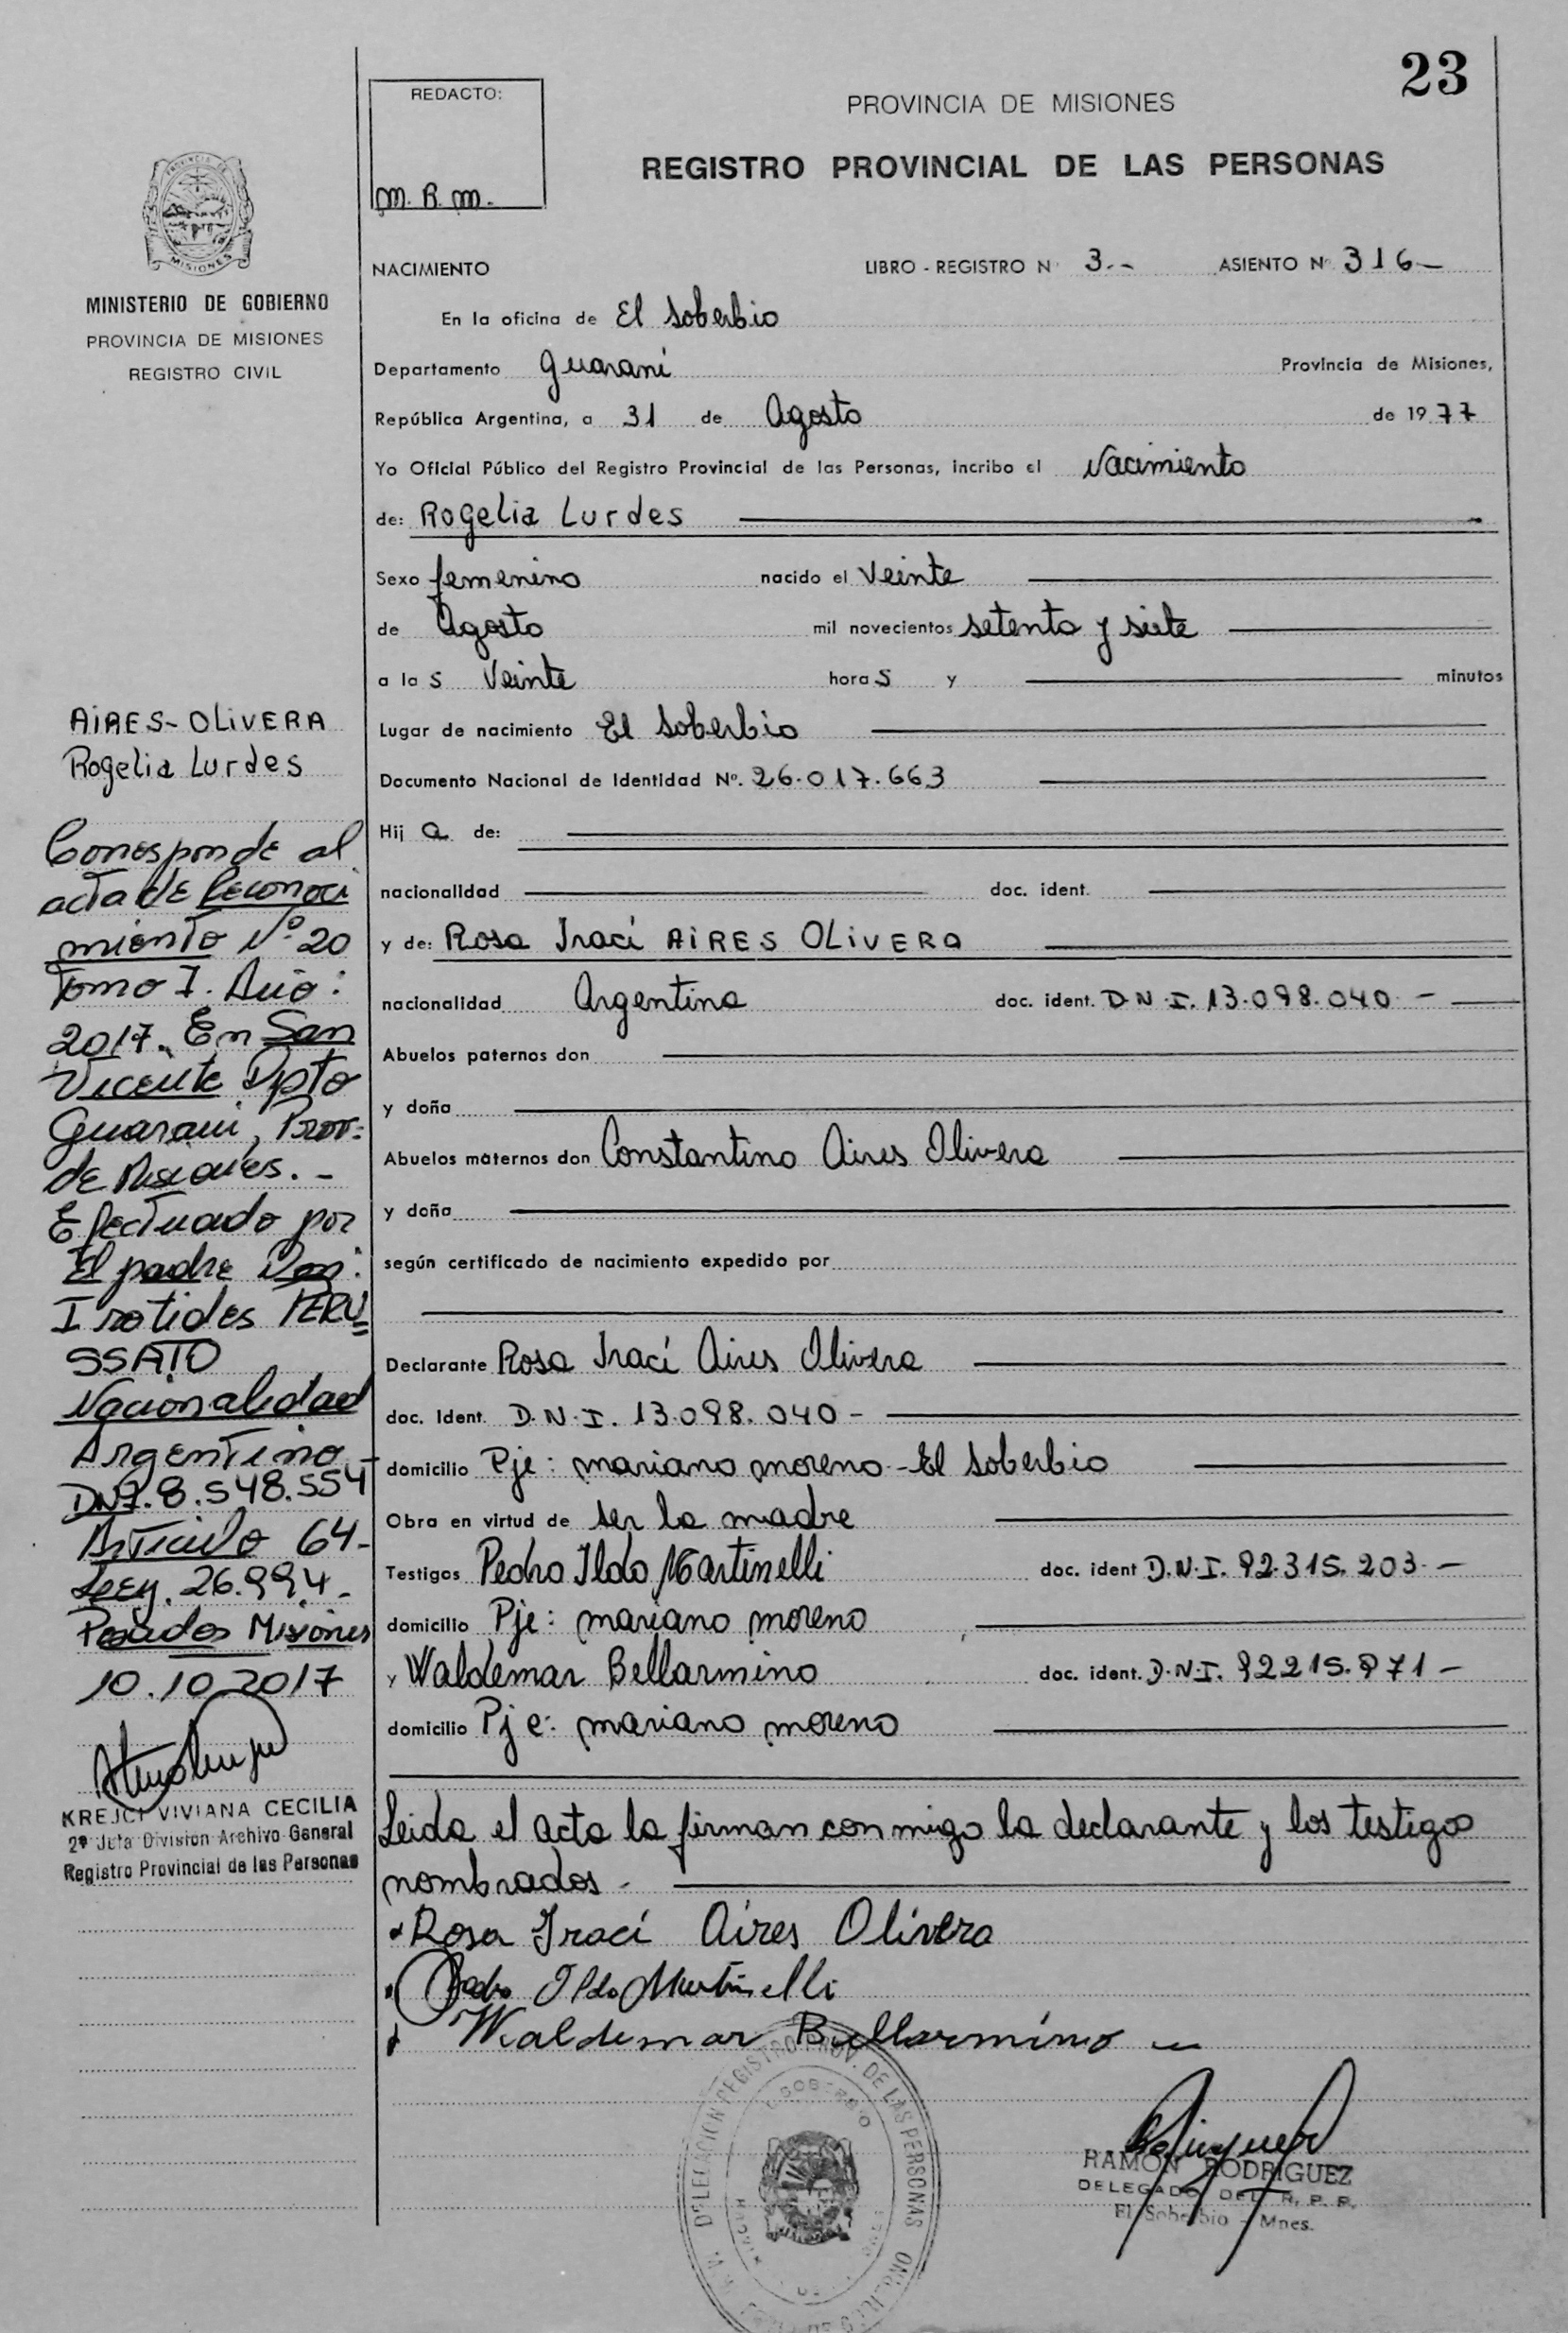 23
REDACTO:
M. R. M.
PROVINCIA DE MISIONES
REGISTRO PROVINCIAL DE LAS PERSONAS
MISIONES
MINISTERIO DE GOBIERNO
PROVINCIA DE MISIONES
REGISTRO CIVIL
NACIMIENTO LIBRO - REGISTRO N° 3.- ASIENTO N° 316-
En la oficina de El Soberbio
Departamento Guaraní Provincia de Misiones,
República Argentina, a 31 de Agosto de 1977
Yo Oficial Público del Registro Provincial de las Personas, incribo el Nacimiento
de: Rogelia Lurdes
Sexo femenino nacido el Veinte
de Agosto mil novecientos setenta y siete
a las Veinte horas y minutos
Lugar de nacimiento El Soberbio
Documento Nacional de Identidad Nº. 26.017.663
Hija de:
nacionalidad doc. ident.
y de: Rosa Iraci AIRES OLIVERA
nacionalidad Argentina doc. ident. D.N.I. 13.098.040.-
Abuelos paternos don
y doña
Abuelos maternos don Constantino Aires Olivera
y doña
según certificado de nacimiento expedido por
Declarante Rosa Iraci Aires Olivera
doc. Ident. D.N.I. 13.098.040-
domicilio Pje: mariano moreno - El Soberbio
Obra en virtud de ser la madre
Testigos Pedro Ildo Martinelli doc. ident D.N.I. 92.315.203.-
domicilio Pje: mariano moreno
y Waldemar Bellarmino doc. ident. D.N.I. 92215.971-
domicilio Pje: mariano moreno
Leida el acta la firman conmigo la declarante y los testigos
nombrados.-
Rosa Iraci Aires Olivera
Pedro Ildo Martinelli
Waldemar Bellarmino
AIRES-OLIVERA
Rogelia Lurdes
Corresponde al
acta de Reconoci
miento Nº 20
Tomo I. Año:
2017. En San
Vicente Dpto
Guarani, Prov:
de Misiones.-
Efectuado por
El padre Don:
Irotides PERU
SSATO
Nacionalidad
Argentino
DNI. 8.548.554
Articulo 64-
Leey. 26.994-
Posadas Misiones
10.10.2017
KREJCI VIVIANA CECILIA
2º Jefa Division Archivo General
Registro Provincial de las Personas
DELEGACION REGISTRO PROV. DE LAS PERSONAS
RAMON RODRIGUEZ
DELEGADO DEL R. P. P.
El Soberbio - Mnes.